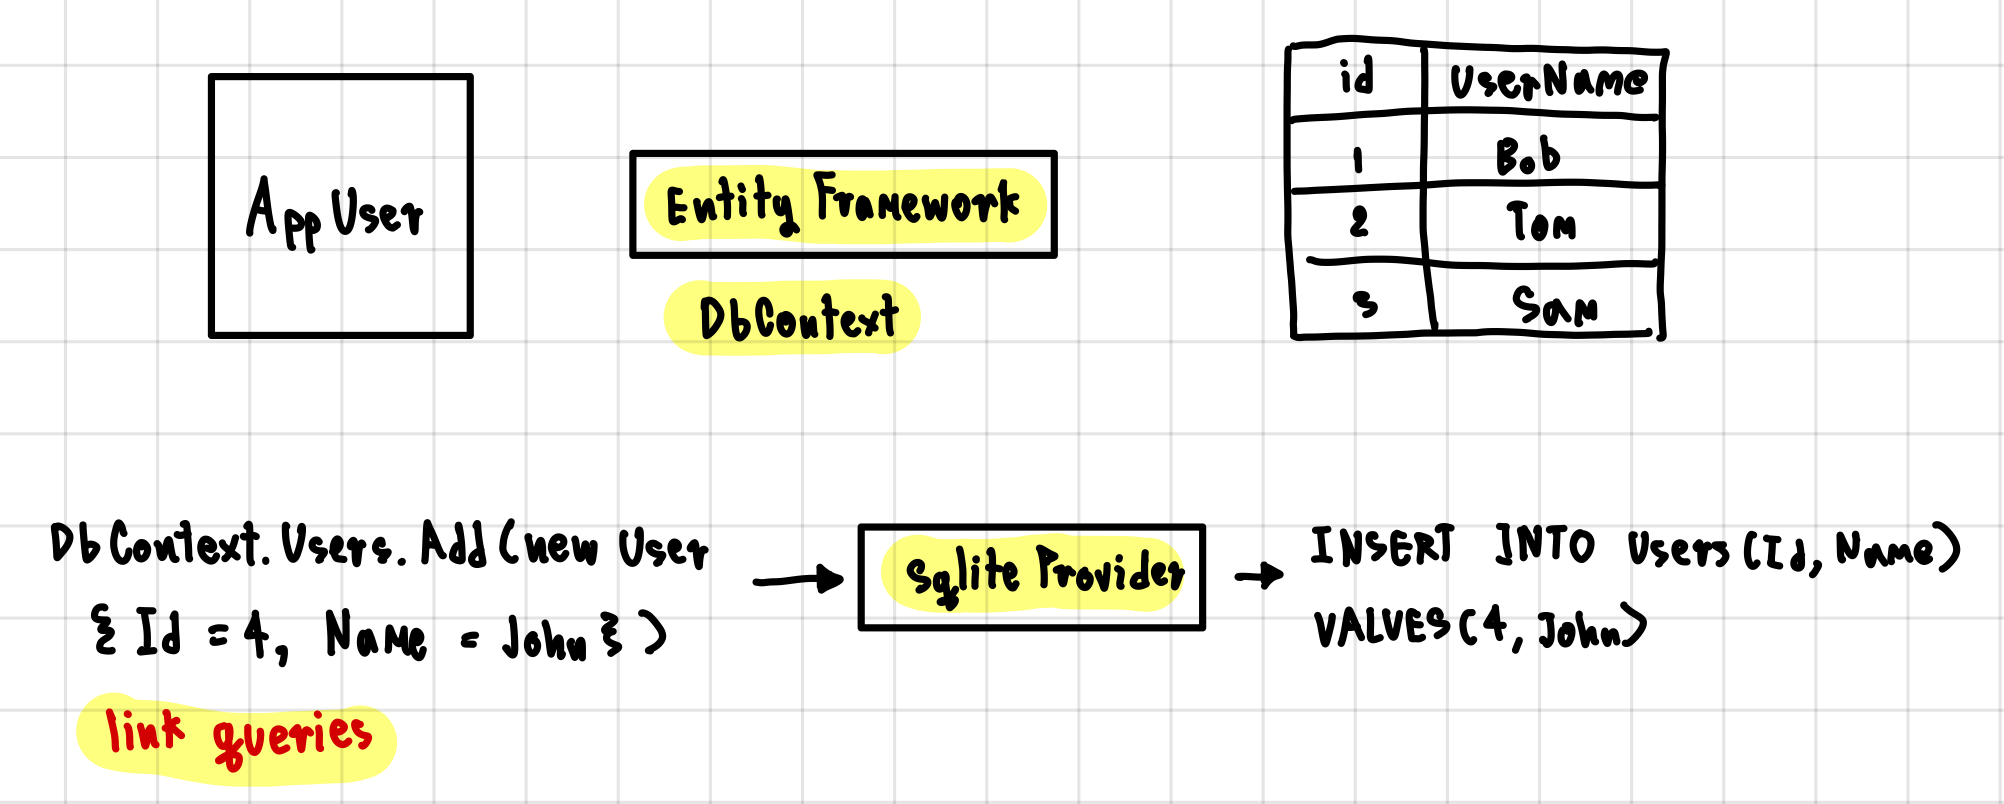 AppUser
Entity Framework
DbContext
id UserName
1 Bob
2 Tom
3 Sam
DbContext.Users.Add(new User
{Id = 4, Name = John})
link queries
Sqlite Provider
INSERT INTO Users(Id, Name)
VALUES(4, John)